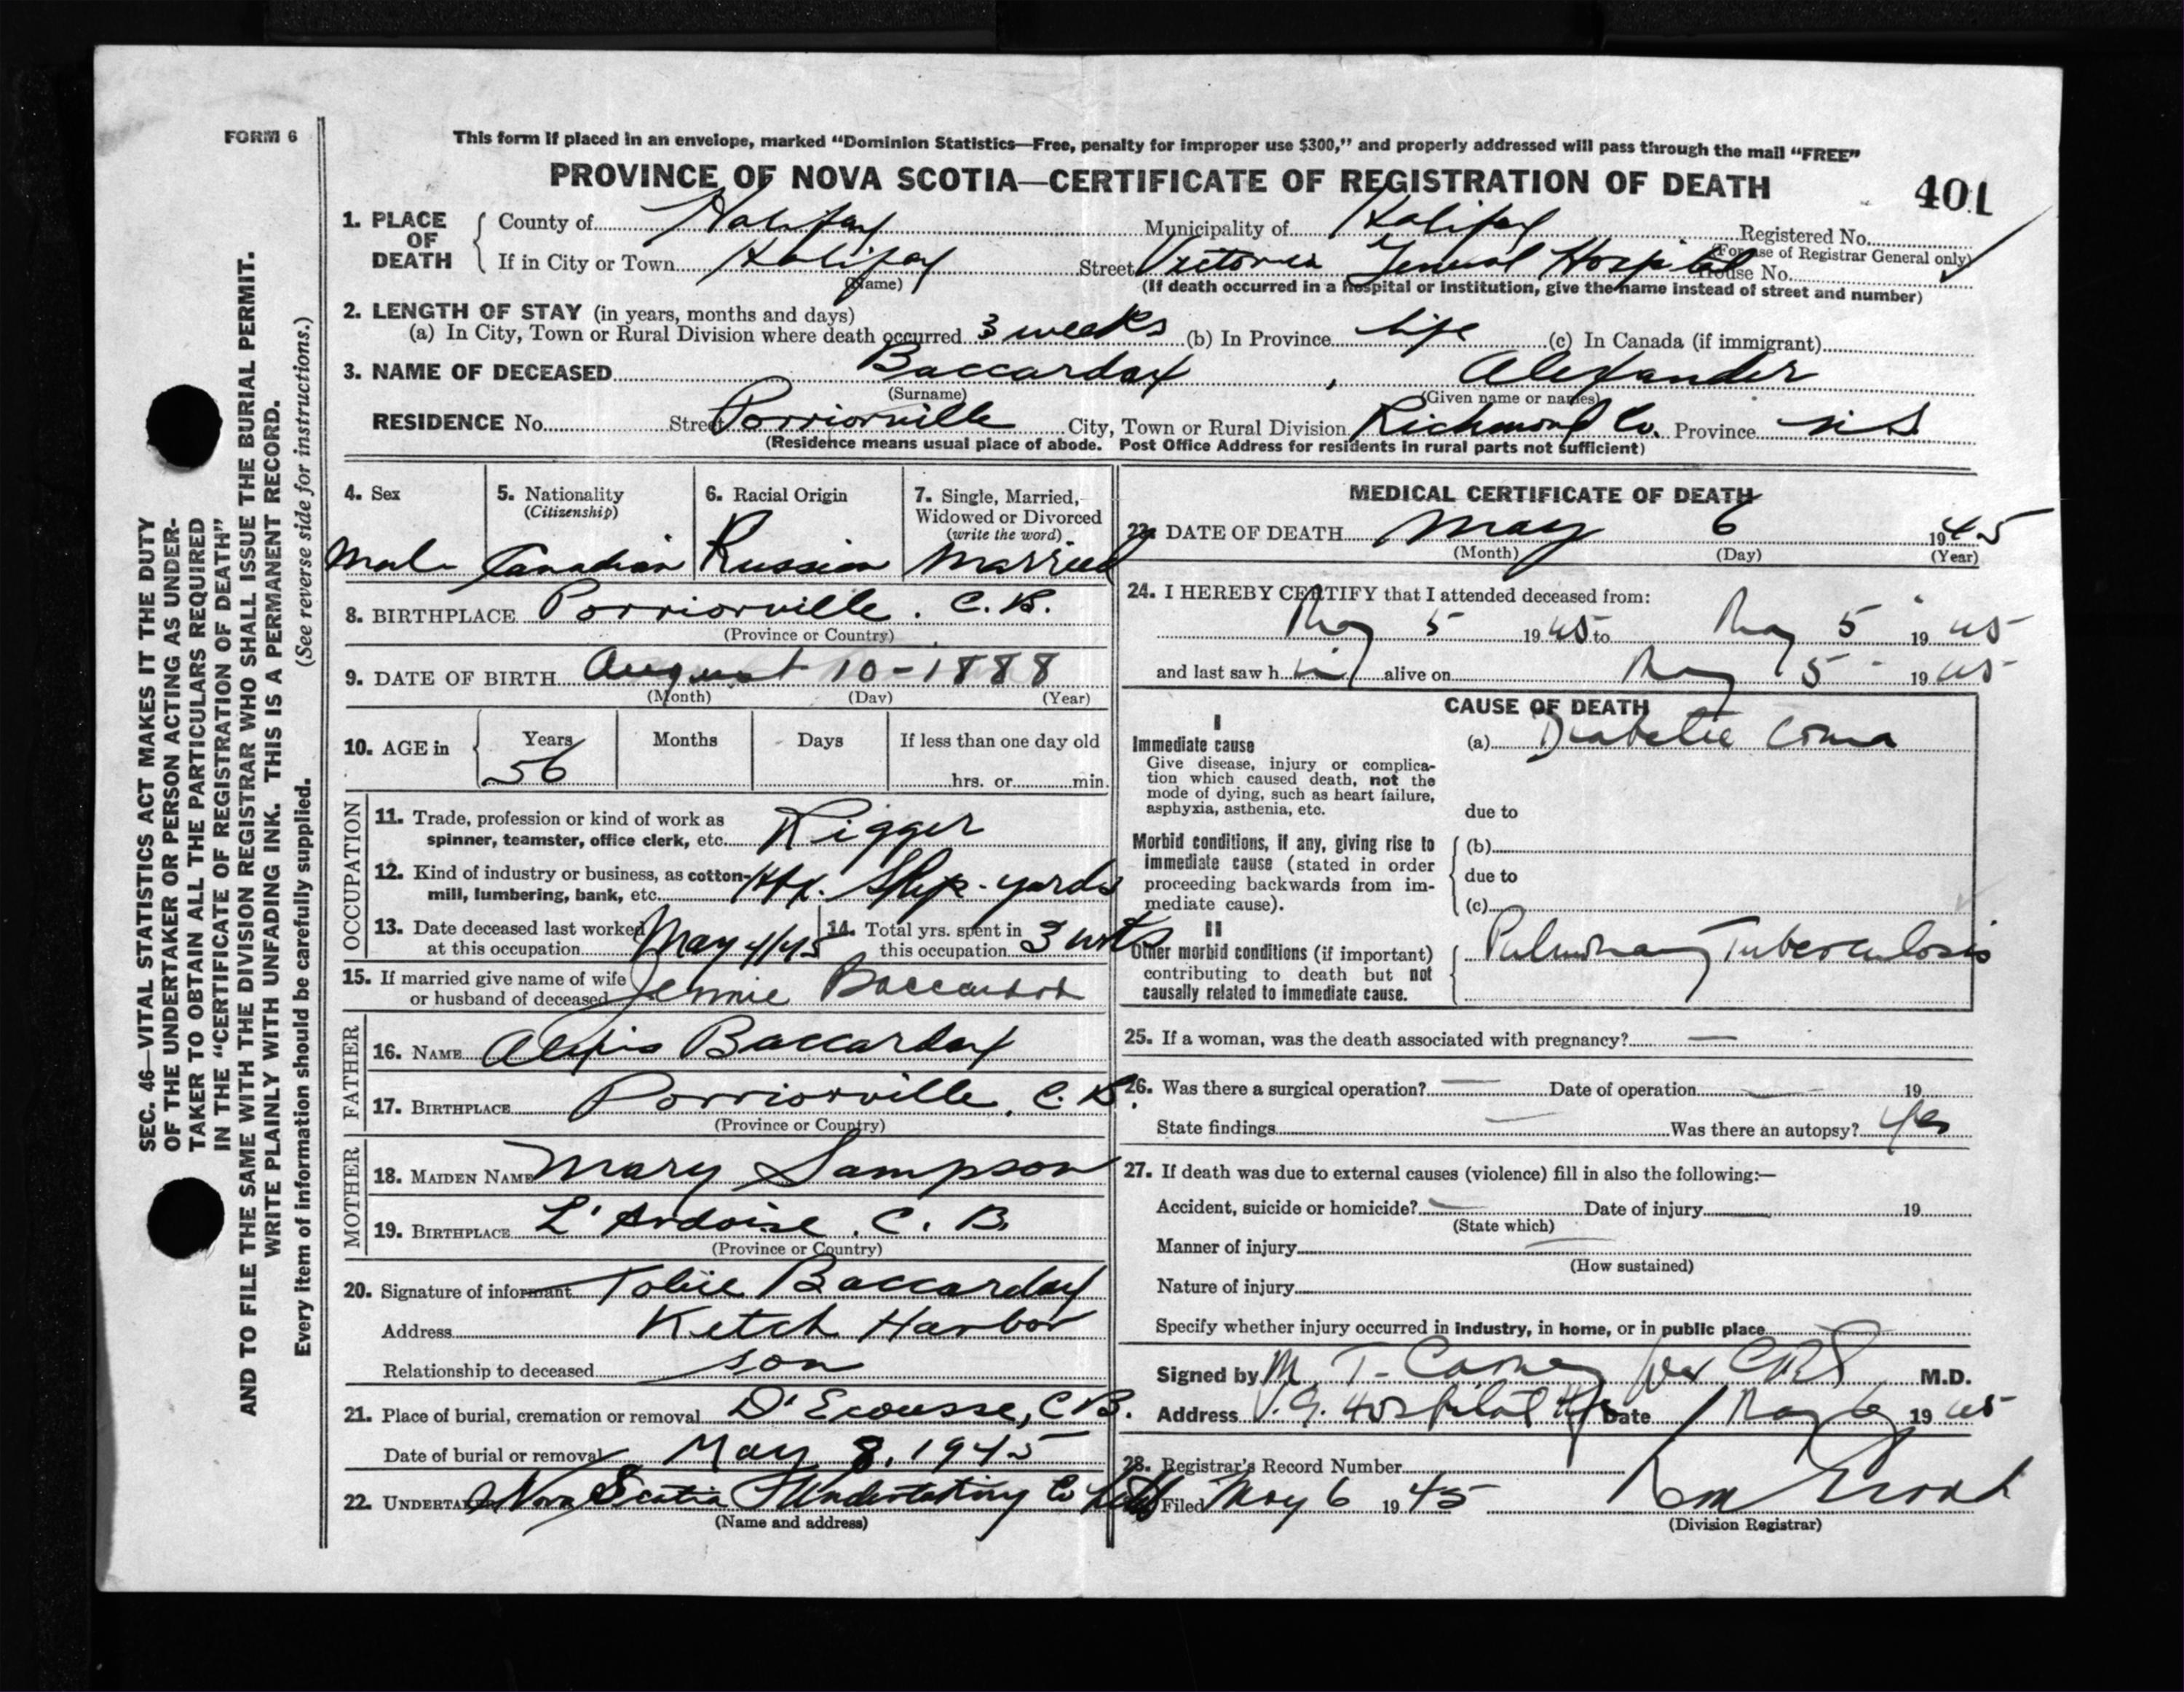 FORM 6
This form if placed in an envelope, marked “Dominion Statistics—Free, penalty for improper use $300,” and properly addressed will pass through the mail “FREE”
PROVINCE OF NOVA SCOTIA—CERTIFICATE OF REGISTRATION OF DEATH
401
1. PLACE OF DEATH
County of Halifax Municipality of Halifax Registered No.
(For use of Registrar General only)
If in City or Town Halifax Street Victoria General Hospital House No.
(Name) (If death occurred in a hospital or institution, give the name instead of street and number)
2. LENGTH OF STAY (in years, months and days)
(a) In City, Town or Rural Division where death occurred 3 weeks (b) In Province life (c) In Canada (if immigrant)
3. NAME OF DECEASED Baccardax , Alexander
(Surname) (Given name or names)
RESIDENCE No. Street Porriorville City, Town or Rural Division Richmond Co. Province N.S.
(Residence means usual place of abode. Post Office Address for residents in rural parts not sufficient)
4. Sex
Male
5. Nationality
(Citizenship)
Canadian
6. Racial Origin
Russian
7. Single, Married,
Widowed or Divorced
(write the word)
Married
8. BIRTHPLACE Porriorville. C.B.
(Province or Country)
9. DATE OF BIRTH August 10-1888
(Month) (Day) (Year)
10. AGE in
Years Months Days If less than one day old
56 hrs. or min.
OCCUPATION
11. Trade, profession or kind of work as
spinner, teamster, office clerk, etc. Rigger
12. Kind of industry or business, as cotton-
mill, lumbering, bank, etc. Hfx. Ship-yards
13. Date deceased last worked
at this occupation May 4/45
14. Total yrs. spent in
this occupation 3 wks
15. If married give name of wife
or husband of deceased Jennie Baccardax
FATHER
16. NAME Alexis Baccardax
17. BIRTHPLACE Porriorville. C.B.
(Province or Country)
MOTHER
18. MAIDEN NAME Mary Sampson
19. BIRTHPLACE L'Ardoise. C.B.
(Province or Country)
20. Signature of informant Tobie Baccardax
Address Ketch Harbor
Relationship to deceased son
21. Place of burial, cremation or removal D'Ecousse, C.B.
Date of burial or removal May 8, 1945
22. UNDERTAKER Nova Scotia Undertaking Co
(Name and address)
MEDICAL CERTIFICATE OF DEATH
23. DATE OF DEATH May 6 1945
(Month) (Day) (Year)
24. I HEREBY CERTIFY that I attended deceased from:
May 5 1945 to May 5 1945
and last saw him alive on May 5 1945
CAUSE OF DEATH
I
Immediate cause
Give disease, injury or complica-
tion which caused death, not the
mode of dying, such as heart failure,
asphyxia, asthenia, etc.
(a) Diabetic Coma
due to
Morbid conditions, if any, giving rise to
immediate cause (stated in order
proceeding backwards from im-
mediate cause).
(b)
due to
(c)
II
Other morbid conditions (if important)
contributing to death but not
causally related to immediate cause.
Pulmonary Tuberculosis
25. If a woman, was the death associated with pregnancy? —
26. Was there a surgical operation? — Date of operation — 19
State findings — Was there an autopsy? Yes
27. If death was due to external causes (violence) fill in also the following:—
Accident, suicide or homicide? — Date of injury — 19
(State which)
Manner of injury —
(How sustained)
Nature of injury
Specify whether injury occurred in industry, in home, or in public place
Signed by M. T. per M.D.
Address V.G. Hospital Hfx Date May 6 1945
28. Registrar's Record Number
Filed May 6 1945
(Division Registrar)
SEC. 46—VITAL STATISTICS ACT MAKES IT THE DUTY
OF THE UNDERTAKER OR PERSON ACTING AS UNDER-
TAKER TO OBTAIN ALL THE PARTICULARS REQUIRED
IN THE “CERTIFICATE OF REGISTRATION OF DEATH”
AND TO FILE THE SAME WITH THE DIVISION REGISTRAR WHO SHALL ISSUE THE BURIAL PERMIT.
WRITE PLAINLY WITH UNFADING INK. THIS IS A PERMANENT RECORD.
Every item of information should be carefully supplied. (See reverse side for instructions.)